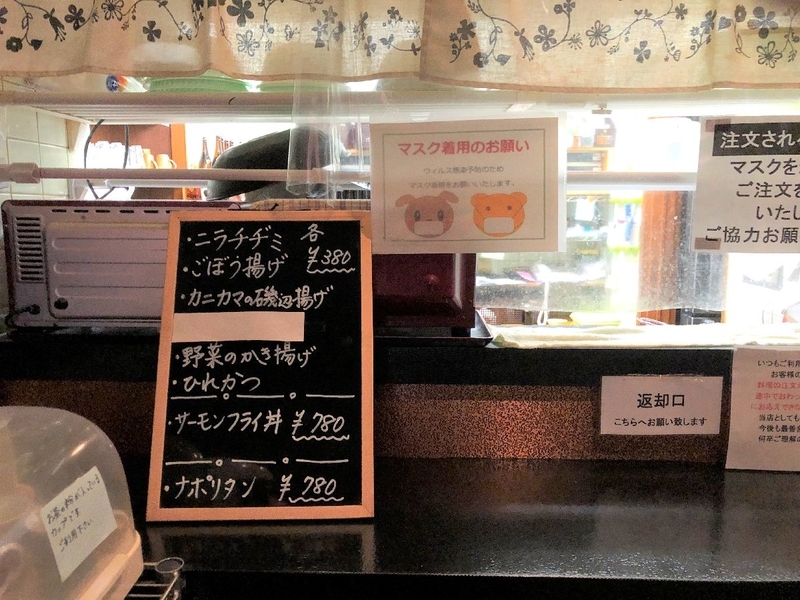 ・ニラチヂミ 各
・ごぼう揚げ ¥380
・カニカマの磯辺揚げ
・野菜のかき揚げ
・ひれかつ
・サーモンフライ丼 ¥780
・ナポリタン ¥780
マスク着用のお願い
ウィルス感染予防のため
マスク着用をお願いいたします。
注文され
マスクを
ご注文を
いたし
ご協力お願
返却口
こちらへお願い致します
いつもご利用
お客様の
料理の注文
途中でおわっ
にお応えできな
当店としても
今後も最善
何卒ご理解の
カップです
ご利用下さい